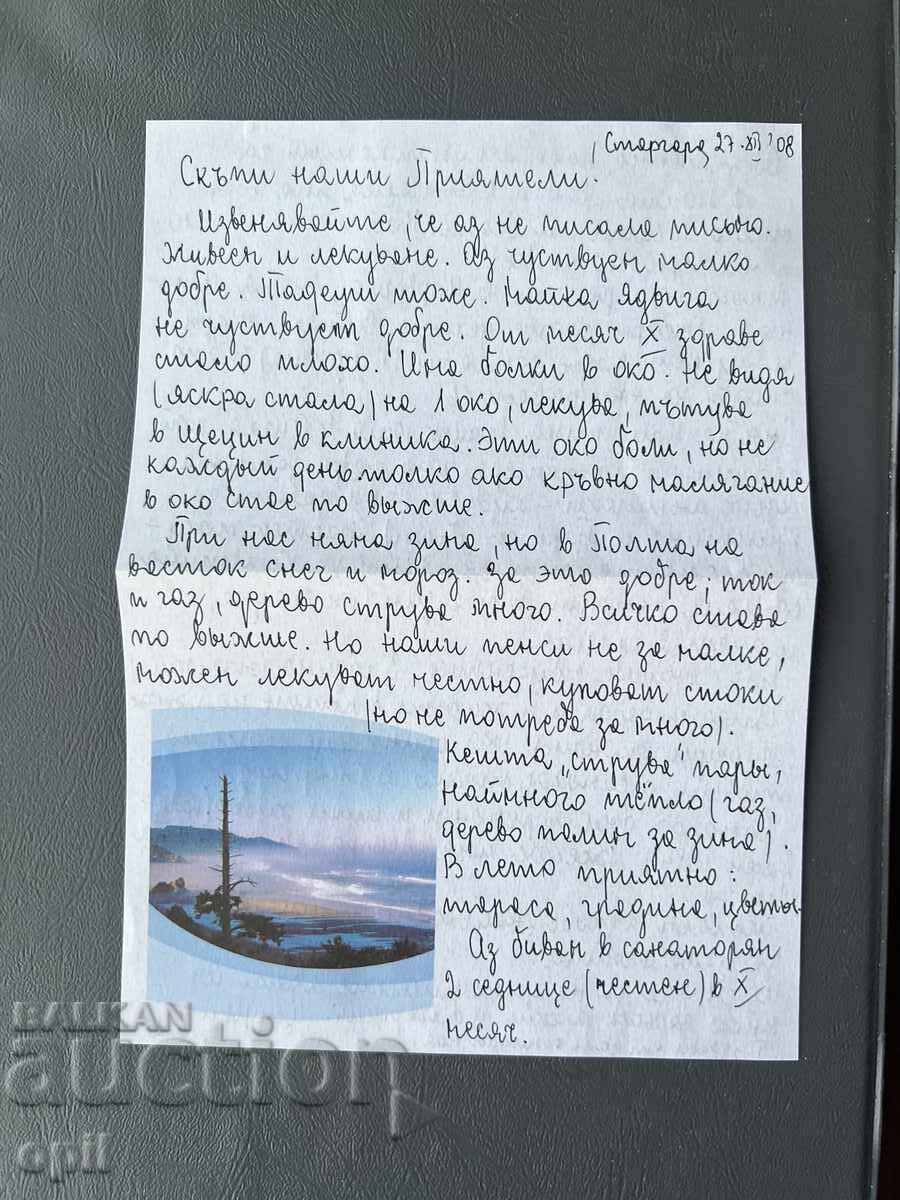 Старгард 27.XII '08
Скъпи наши Приятели.
Извенявайте, че аз не писала письмо.
Живеем и лекуваме. Аз чуствуем малко
добре. Тадеуш тоже. Майка Ядвига
не чуствует добре. От месяч X здраве
стало плохо. Има болки в око. Не видя
(яскра стала) на 1 око, лекува, пътува
в Щецин в клиника. Эти око боли, но не
каждый день. толко ако кръвно малягание
в око стае по выжше.
При нас няма зима, но в Полша на
восток снег и мороз. за это добре; ток
и газ, дерево струва много. Всичко става
по выжше. Но наши пенси не за малке,
можем лекуват честно, куповат стоки
(но не потреба за много).
Кешта „струва" пары,
наймного тёпло (газ,
дерево палим за зима).
В лето приятно:
тараса, градина, цветы.
Аз бивам в санаторям
2 седмице (честем) в X
месяч.
BALKAN
auction
opil